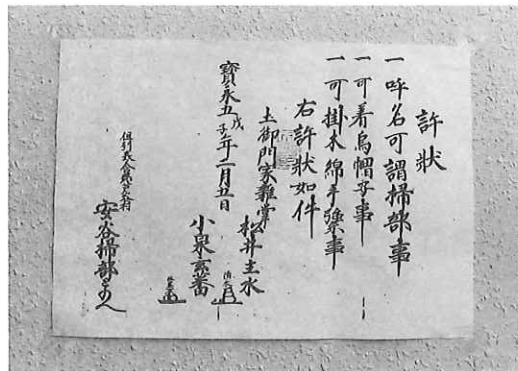 許狀
一 呼名可謂掃部事
一 可着烏帽子事
一 可掛木綿手繦事
右許狀如件
土御門家雜掌
松井主水
寶永五戊子年二月五日
小泉玄蕃
安谷掃部とのへ